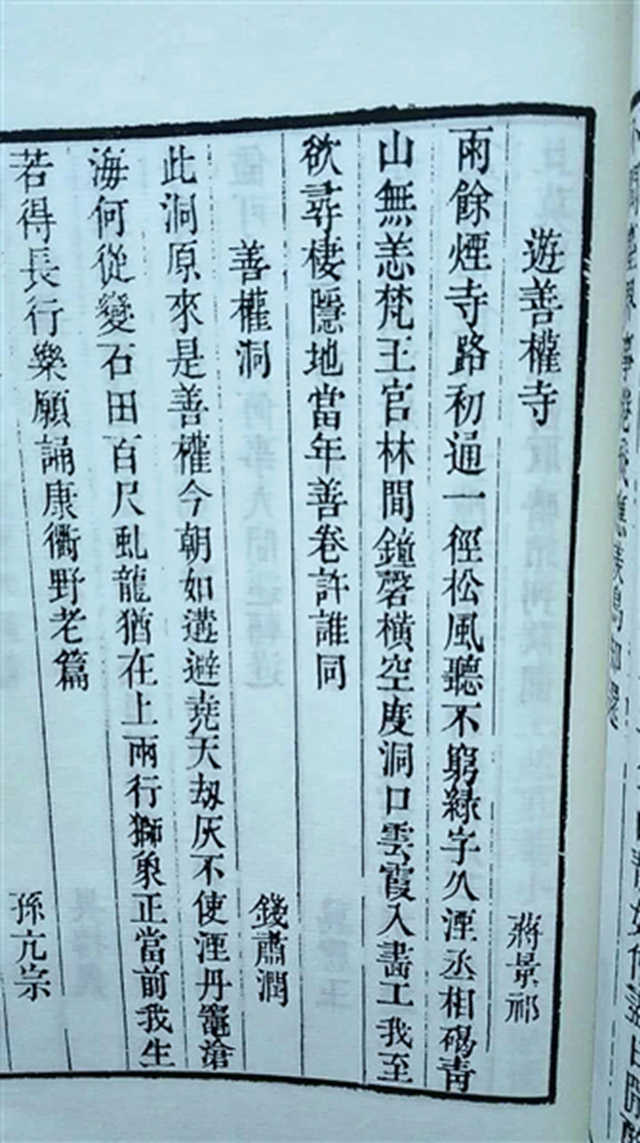 遊善權寺 蔣景祁
雨餘煙寺路初通一徑松風聽不窮綠字久湮丞相碣青
山無恙梵王官林間鐘磬橫空度洞口雲霞入畵工我至
欲尋棲隱地當年善卷許誰同
善權洞 錢肅潤
此洞原來是善權今朝如遘避堯天刼灰不使湮丹竈滄
海何從變石田百尺虬龍猶在上兩行獅象正當前我生
若得長行樂願誦康衢野老篇
孫亢宗